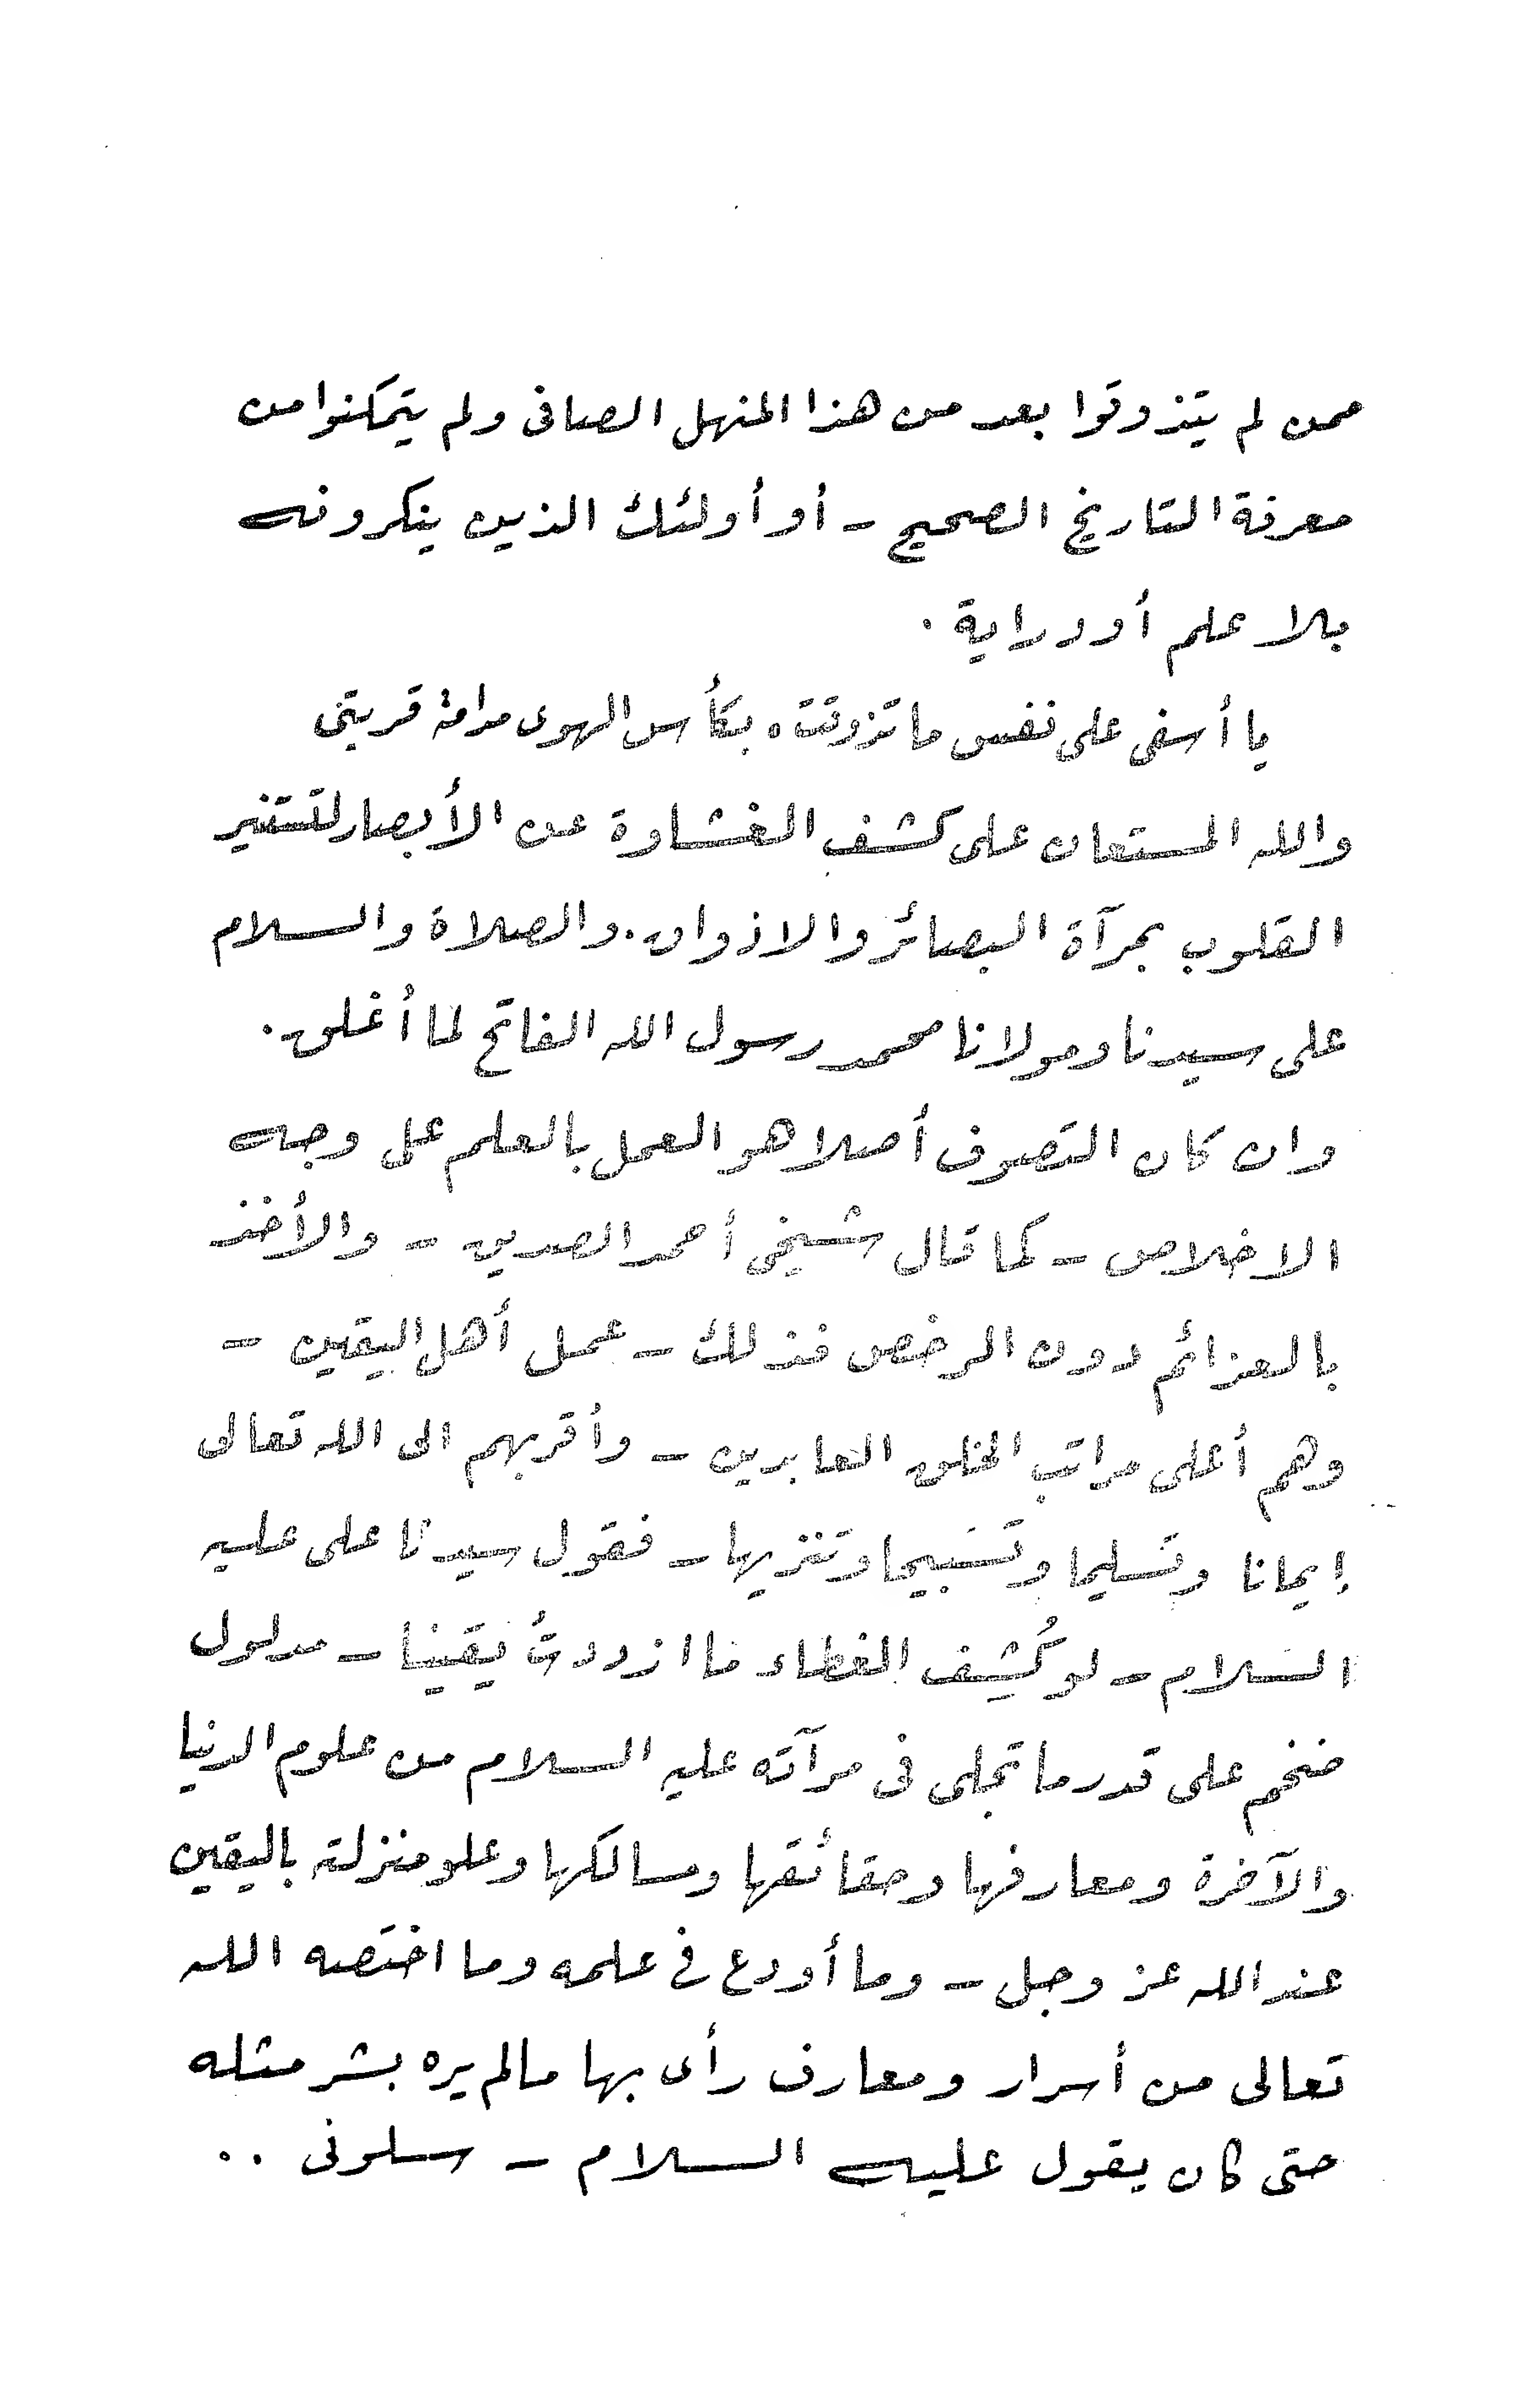 ممن لم يتذوقوا بعد من هذا المنهل الصافى ولم يتمكنوا من
معرفة التاريخ الصحيح - أو أولئك الذين ينكرونه
بلا علم أو دراية .
يا أسفى على نفس ما تذوقت ه بكأس الهوى مدامة قربتى
والله المستعان على كشف الغشاوة عن الأبصار لتستنير
القلوب بمرآة البصائر والاذواق . والصلاة والسلام
على سيدنا ومولانا محمد رسول الله الفاتح لما أغلق .
وان كان التصوف أصلا هو العمل بالعلم على وجه
الاخلاص - كما قال شيخى أحمد الصديق - والأخذ
بالعزائم دون الرخص فذلك - عمل أهل اليقين -
وهم أعلى مراتب الخلق العابدين - وأقربهم الى الله تعالى
إيمانا وتسليما وتسبيحا وتنزيها - فقول سيدنا على عليه
السلام - لو كُشِف الغطاء ما ازددتُ يقينا - مدلول
ضخم على قدر ما تجلى فى مرآته عليه السلام من علوم الدنيا
والآخرة ومعارفها وحقائقها ومسالكها وعلو منزلته باليقين
عند الله عز وجل - وما أودع فى علمه وما اختصه الله
تعالى من أسرار ومعارف رأى بها مالم يره بشر مثله
حتى كان يقول عليه السلام - سلونى . .